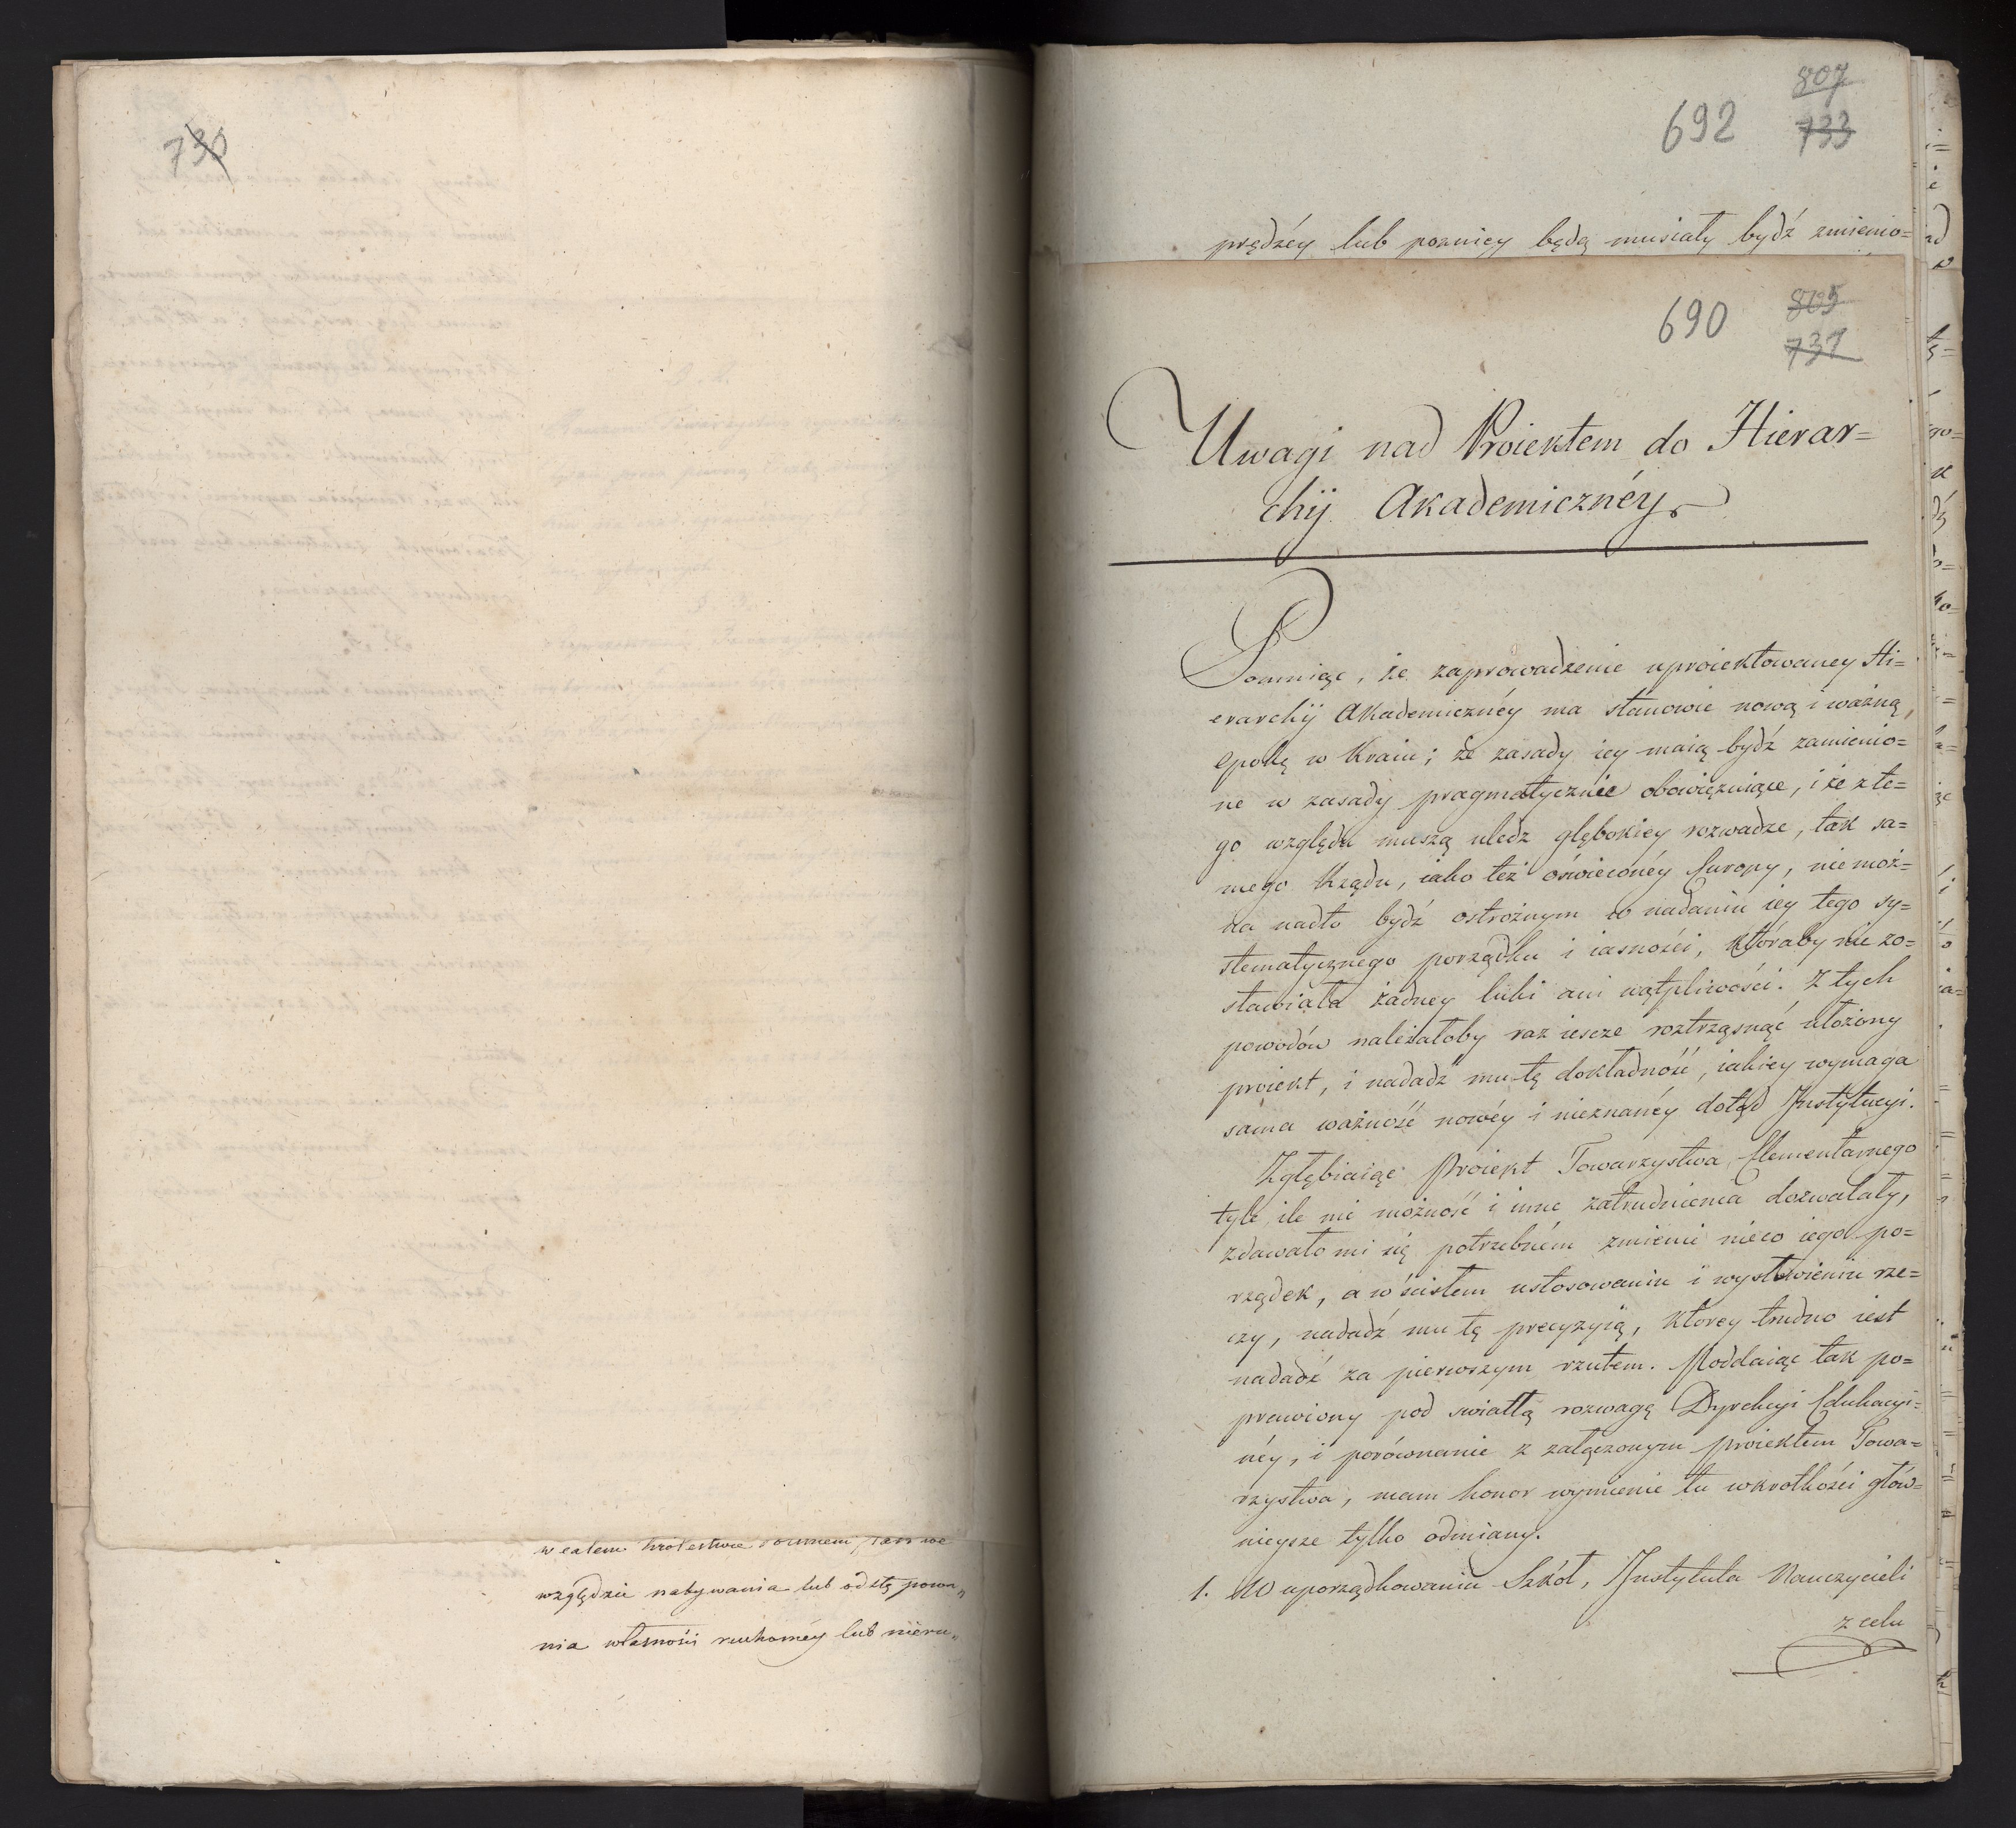 730
w całem
względzie nabywania lub odstępowa„
nia własności ruchoméy lub nieru„
807
692 733
prędzéy lub pozniey będą musiały bydź zmienio=
690 805
731
Uwagi nad Proiektem do Hierar=
chij Akademicznéy
Pomniąc, że zaprowadzenie uproiektowaney Hi=
erarchij Akademicznéy ma stanowic nową i ważną,
epokę w Kraiu; że zasady iey maią bydź zamienio=
ne w zasady pragmatycznie obowięzuiące, i że z te=
go względu muszą uledz głębokiey rozwadze, tak sa=
mego Rządu, iako też oświeconéy Europy, nie moż=
na nadto bydź ostrożnym w nadaniu iey tego sy=
stematycznego porządku i iasności, któraby nie zo=
stawiała żadney luki ani wątpliwości. Z tych
powodów należałoby raz iescze roztrząsnąć ułożony
proiekt, i nadadź mu tę dokładność, iakiey wymaga
sama ważność nowéy i nieznanéy dotąd Instytucyi.
Zgłębiaiąc Proiekt Towarzystwa Elementarnego
tyle, ile mi możność i inne zatrudnienia dozwalały,
zdawało mi się potrzebném zmienic nieco iego po=
rządek, a w ścisłem ustosowaniu i wysłowieniu rze=
czy, nadadź mu tę precyzyią, ktorey trudno iest
nadadź za pierwszym rzutem. Poddaiąc tak po=
prawiony pod swiatłą rozwagę Dyrekcyi Edukacyi=
néy, i porównanie z załączonym proiektem Towa=
rzystwa, mam honor wymienic tu wkrotkości głów=
nieysze tylko odmiany.
1. Do uporządkowania Szkół, Instytuta Nauczycieli
z celu